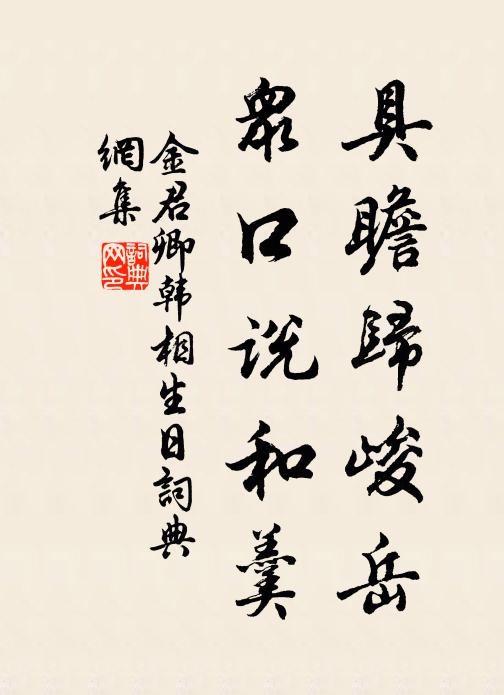 具瞻歸峻岳
眾口説和羹
金君卿韩相生日詞典
網集
詞典
网印